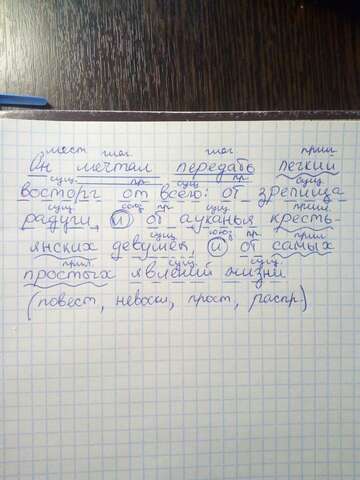 мест. глаг. глаг. прил.
Он мечтал передать легкий
сущ. пр. сущ. пр. сущ.
восторг от всего: от зрелища
сущ. союз пр. сущ. прил.
радуги, и от ауканья кресть-
сущ. союз пр. прил.
янских девушек, и от самых
прил. сущ. сущ.
простых явлений жизни
(повест, невоскл, прост, распр.)